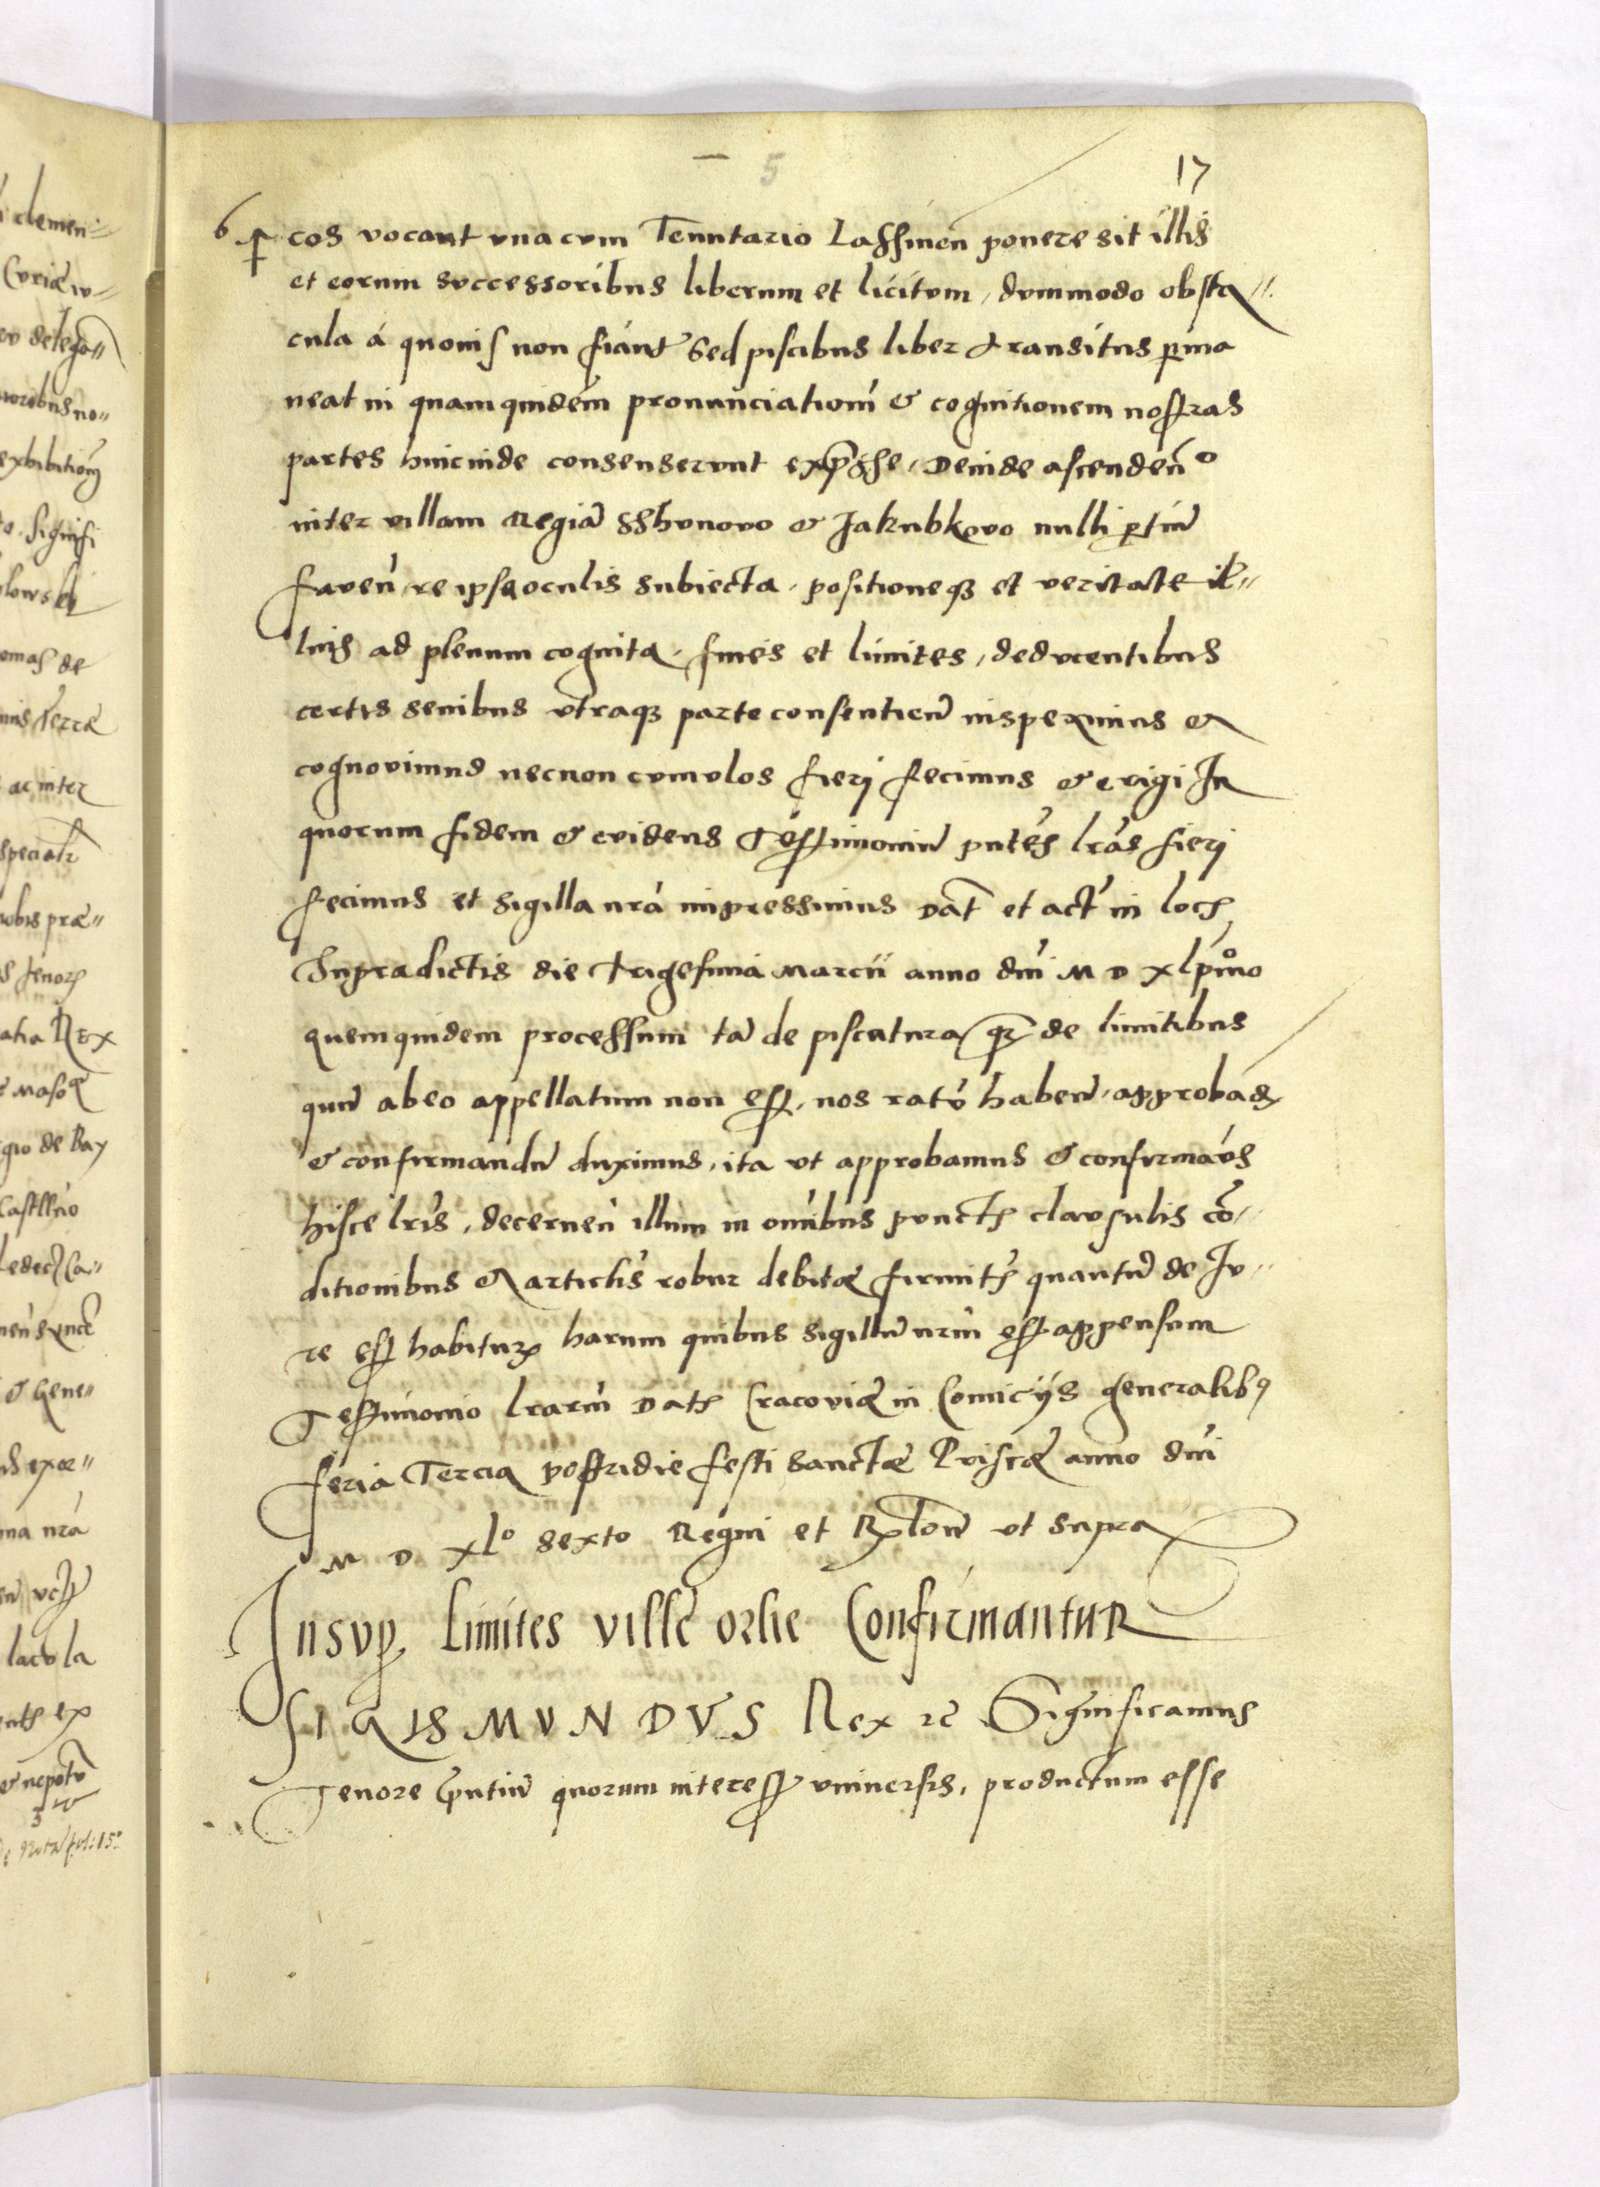 5
17
6
cos vocant vna cum Tenutario Lassinen ponere sit illis
et eorum successoribus liberum et licitum, dummodo obsta//
cula á quouis non fiant Sed piscibus liber transitus pma
neat in quam quidem pronunciationẽ & cognitionem nostras
partes hincinde consenserunt exp̃sse, Deinde ascendeñ
inter villam Regiã Schvnovo & Jakubkovo nulli ptiũ
faueñ, re ipsa oculis subiecta, positioneq3 et veritate il//
lius ad plenum cognita, fines et limites, deducentibus
certis senibus vtraq3 parte consentieñ inspeximus et
cognouimus necnon cumulos fieri fecimus & erigi In
quorum fidem & euidens Testimoniũ pñtes lr̃as fieri
fecimus et sigilla nr̃a impressimus Dat̃ et act̃ in locis
Supradictis die trigesima Marcii anno dñi M D xl pimo
quemquidem processum tã de piscatura q̃3 de limitibus
quũ ab eo appellatum non est, nos ratũ habeñ, approbad
& confirmandũ duximus, ita vt approbamus & confirmam̃s
hisce lr̃is, decerneñ illum in omĩbus punctis clausulis cõ//
ditionibus et articlis robur debitæ firmit̃s quantũ de Ju//
re est habiturx harum quibus sigillũ nr̃m est appensum
Testimonio lrarũ Datis Cracoviæ in Comicÿs generalib9
feria Tercia postridie festi Sanctæ Priscæ anno dñi
M D xlo sexto Regni et ut supra
Insup Limites ville orlie Confirmantur
SIGISMVNDVS Rex ꝛc Significamus
Tenore p̃ntiũ quorum interest vniuersis, productum esse